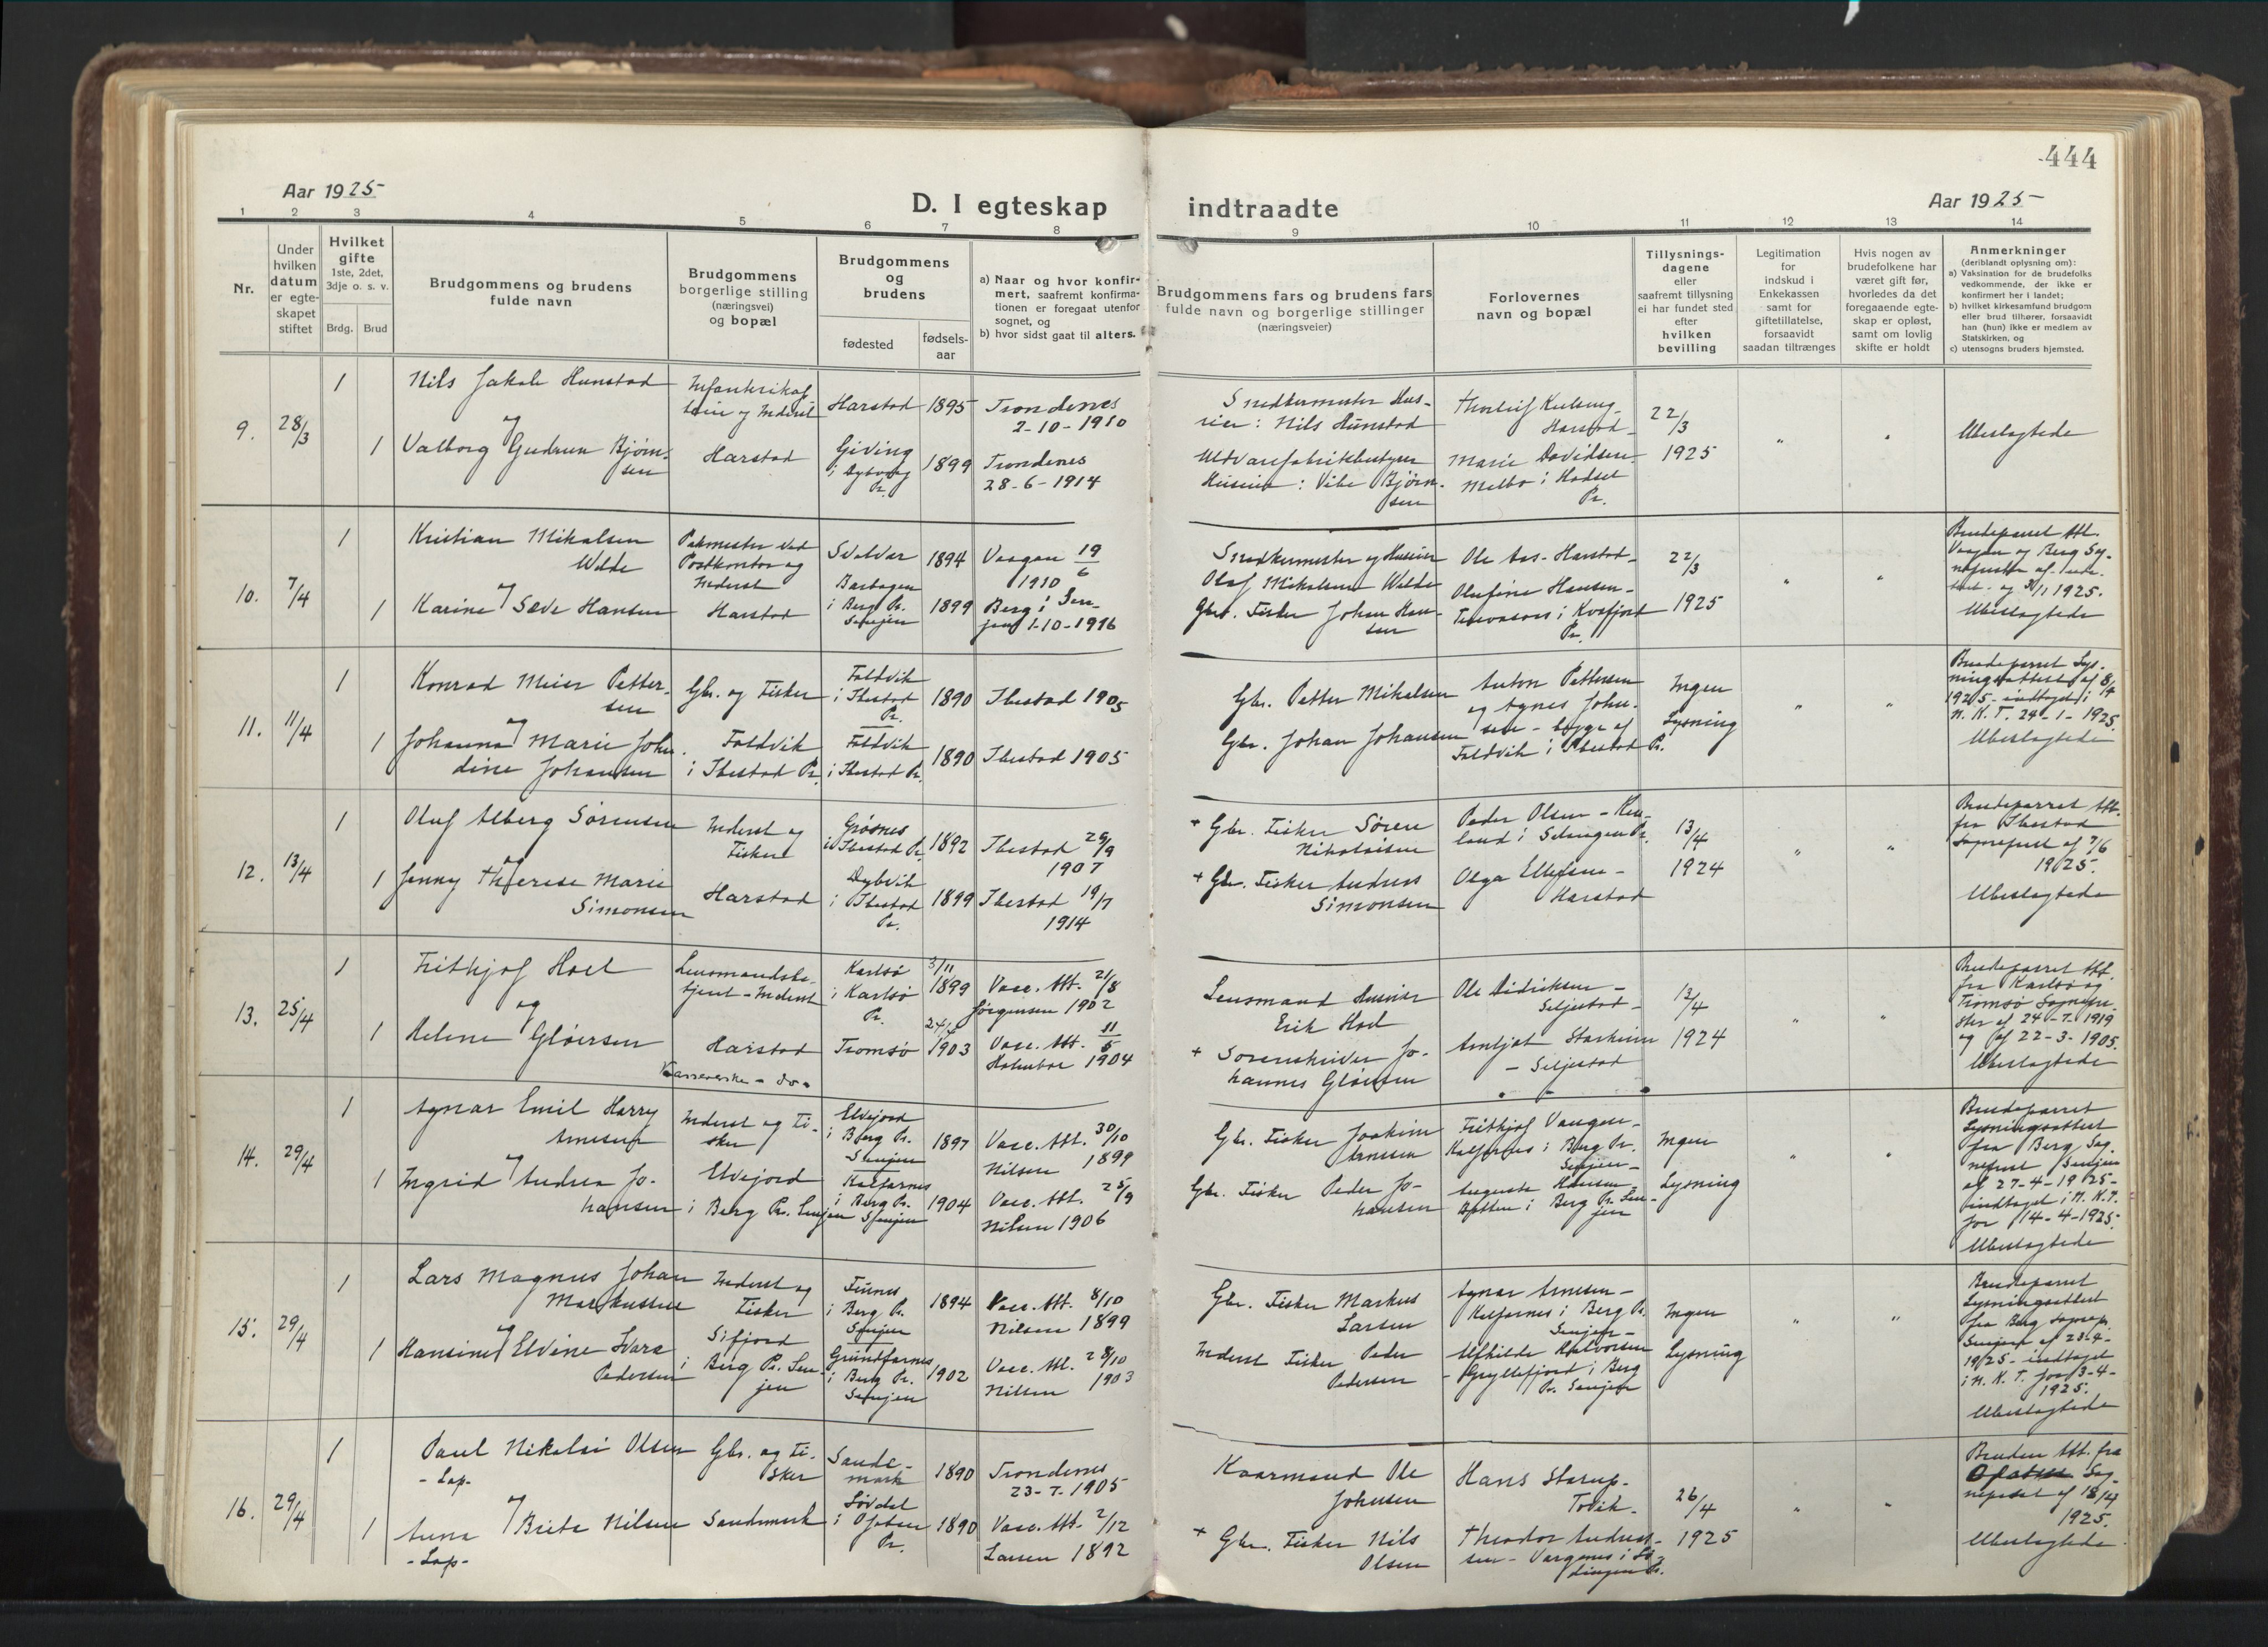 444
Aar 1925
D. I egteskap indtraadte
Aar 1925
1 2 3 4 5 6 7 8 9 10 11 12 13 14
Nr.
Under
hvilken
datum
er egte-
skapet
stiftet
Hvilket
gifte
1ste, 2det,
3dje o. s. v.
Brdg. Brud
Brudgommens og brudens
fulde navn
Brudgommens
borgerlige stilling
(næringsvei)
og bopæl
Brudgommens
og
brudens
fødested
fødsels-
aar
a) Naar og hvor konfir-
mert, saafremt konfirma-
tionen er foregaat utenfor
sognet, og
b) hvor sidst gaat til alters.
Brudgommens fars og brudens fars
fulde navn og borgerlige stillinger
(næringsveier)
Forlovernes
navn og bopæl
Tillysnings-
dagene
eller
saafremt tillysning
ei har fundet sted
efter
hvilken
bevilling
Legitimation
for
indskud i
Enkekassen
samt for
giftetillatelse,
forsaavidt
saadan tiltrænges
Hvis nogen av
brudefolkene har
været gift før,
hvorledes da det
foregaaende egte-
skap er opløst,
samt om lovlig
skifte er holdt
Anmerkninger
(deriblandt oplysning om):
a) Vaksination for de brudefolks
vedkommende, der ikke er
konfirmert her i landet;
b) hvilket kirkesamfund brudgom
eller brud tilhører, forsaavidt
han (hun) ikke er medlem av
Statskirken, og
c) utensogns bruders hjemsted.
9.
28/3
1
1
Nils Jakob Hunstad
og
Valborg Gudrun Bjørn-
sen
Harstad
Harstad
Giving
i Dybvaag
Pr.
1895
1899
Trondenes
2-10-1910
Trondenes
28-6-1914
Snedkermester Hus-
eier: Nils Hunstad
Uldvarefabrikbestyrer
Huseier: Vibe Bjørn-
sen
Harstad
Marie Davidsen
Melbo i Hadsel
Pr.
22/3
1925
"
"
Ubeslegtede
10.
7/4
1
1
Kristian Mikalsen
Welde
og
Karine Sæve Hansen
Pakmester ved
Postkontor og
Inderst
Harstad
Svolvær
i Berg Pr.
Senjen
1894
1899
Vaagan 19/6
1910
Berg i Sen-
jen 1-10-1916
Snedkermester og Huseier
Olaf Mikalsen Welde
Gbr. Fisker Johan Han-
sen
Ole Aas - Harstad
Olufine Hansen -
i Kvæfjord
Pr.
22/3
1925
"
"
Brudeparret Att.
Vaagan og Berg Sog-
Ubeslegtede
11.
11/4
1
1
Konrad Meier Petter-
sen
og
Johanna Marie Johan-
dine Johansen
Gbr. og Fisker
Foldvik
i Ibestad Pr.
Foldvik
i Ibestad
Pr.
Foldvik
i Ibestad Pr.
1890
1890
Ibestad 1905
Ibestad 1905
Gbr. Petter Mikalsen
Gbr. Johan Johansen
Anton Pettersen
og Agnes Johan-
sen - begge af
Foldvik i Ibestad Pr.
Ingen
Lysning
"
"
Brudeparret Lys-
ningsattest af 8/4
1925 - indtaget i
N. K. T. 24-1-1925
Ubeslegtede
12.
13/4
1
1
Oluf Alberg Sørensen
og
Jenny Therese Marie
Simonsen
Inderst og
Fisker
Harstad
Grøsnes
i Ibestad Pr.
Dybvik
i Ibestad
Pr.
1892
1899
Ibestad 29/9
1907
Ibestad 19/7
1914
+ Gbr. Fisker Søren
Nikolaisen
+ Gbr. Fisker Andreas
Simonsen
Peder Olsen -
i Salangen Pr.
Olga Ellefsen -
Harstad
13/4
1924
"
"
Brudeparret Att.
fra Ibestad
Sogneprest af 7/6
1925.
Ubeslegtede
13.
25/4
1
1
Frithjof Hoel
og
Helene Gløersen
Lensmandsbe-
tjent - Inderst
Harstad
Kassererske - do -
Karlsø
i Karlsø
Pr.
Tromsø
3/11
1899
1903
Vacc. Att. 21/8
Jørgensen 1902
Vacc. Att. 11/5
Holmboe 1904
Lensmand Huseier
Erik Hoel
+ Sorenskriver Jo-
hannes Gløersen
Ole Didriksen -
Seljestad -
Starheim
- Seljestad
12/4
1924
"
"
Brudeparret Att.
fra Karlsø og
Tromsø Sognepre-
ster af 24-7-1919
og af 22-3-1905.
Ubeslegtede
14.
29/4
1
1
Agnar Emil Harry
Arnesen
og
Ingrid Andrea Jo-
hansen
Inderst og Fi-
sker
Elvejord
i Berg Pr. Senjen
Elvejord
i Berg Pr.
Senjen
Kalfarnes
i Berg Pr.
Senjen
1897
1904
Vacc. Att. 30/10
Nilsen 1899
Vacc. Att. 25/9
Nilsen 1906
Gbr. Fisker Joakim
Arnesen
Gbr. Fisker Peder Jo-
hansen
Frithjof Vangen -
Kalfarnes i Berg Pr.
Senjen -
Auguste Hansen -
i Berg Pr. Sen-
jen
Ingen
Lysning
"
"
Brudeparret
Lysningsattest
fra Berg Sog-
neprest Senjen
af 27-4-1925 -
indtaget i N. K. T.
for 14-4-1925.
Ubeslegtede
15.
29/4
1
1
Lars Magnus Johan
Markussen
og
Hansine Eldine Hvara
Pedersen
Inderst og
Fisker
Sifjord
i Berg Pr. Sen-
jen
Finnes
i Berg Pr.
Senjen
Grundfarnes
i Berg Pr.
Senjen
1894
1902
Vacc. Att. 8/10
Nilsen 1899
Vacc. Att. 28/10
Nilsen 1903
Gbr. Fisker Markus
Larsen
Inderst Fisker Peder
Pedersen
Agnar Arnesen -
Kalfarnes i Berg Pr.
Senjen -
Alfhilde Halvorsen
- Gryllefjord i Berg
Pr. Senjen
Ingen
Lysning
"
"
Brudeparret
Lysningsattest
fra Berg Sognepr.
Senjen af 23-4-
1925 - indtaget
i N. K. T. for 3-4-
1925.
Ubeslegtede
16.
29/4
1
1
Paul Nikolai Olsen
- Lap -
og
Anna Brita Nilsen
- Lap -
Gbr. og Fi-
sker
Sandemark
Sande-
mark
i Ofoten
Pr.
1890
1890
Trondenes
23-7-1905
Vacc. Att. 2/12
Larsen 1892
Kaarmand Ole
Johnsen
+ Gbr. Fisker Nils
Olsen
Hans Storup -
Tovik -
Theodor Andreas-
sen - Vargnes i Lø-
dingen Pr.
26/4
1925
"
"
Bruden Att. fra
Ofoten Sog-
neprest af 18/4
1925.
Ubeslegtede